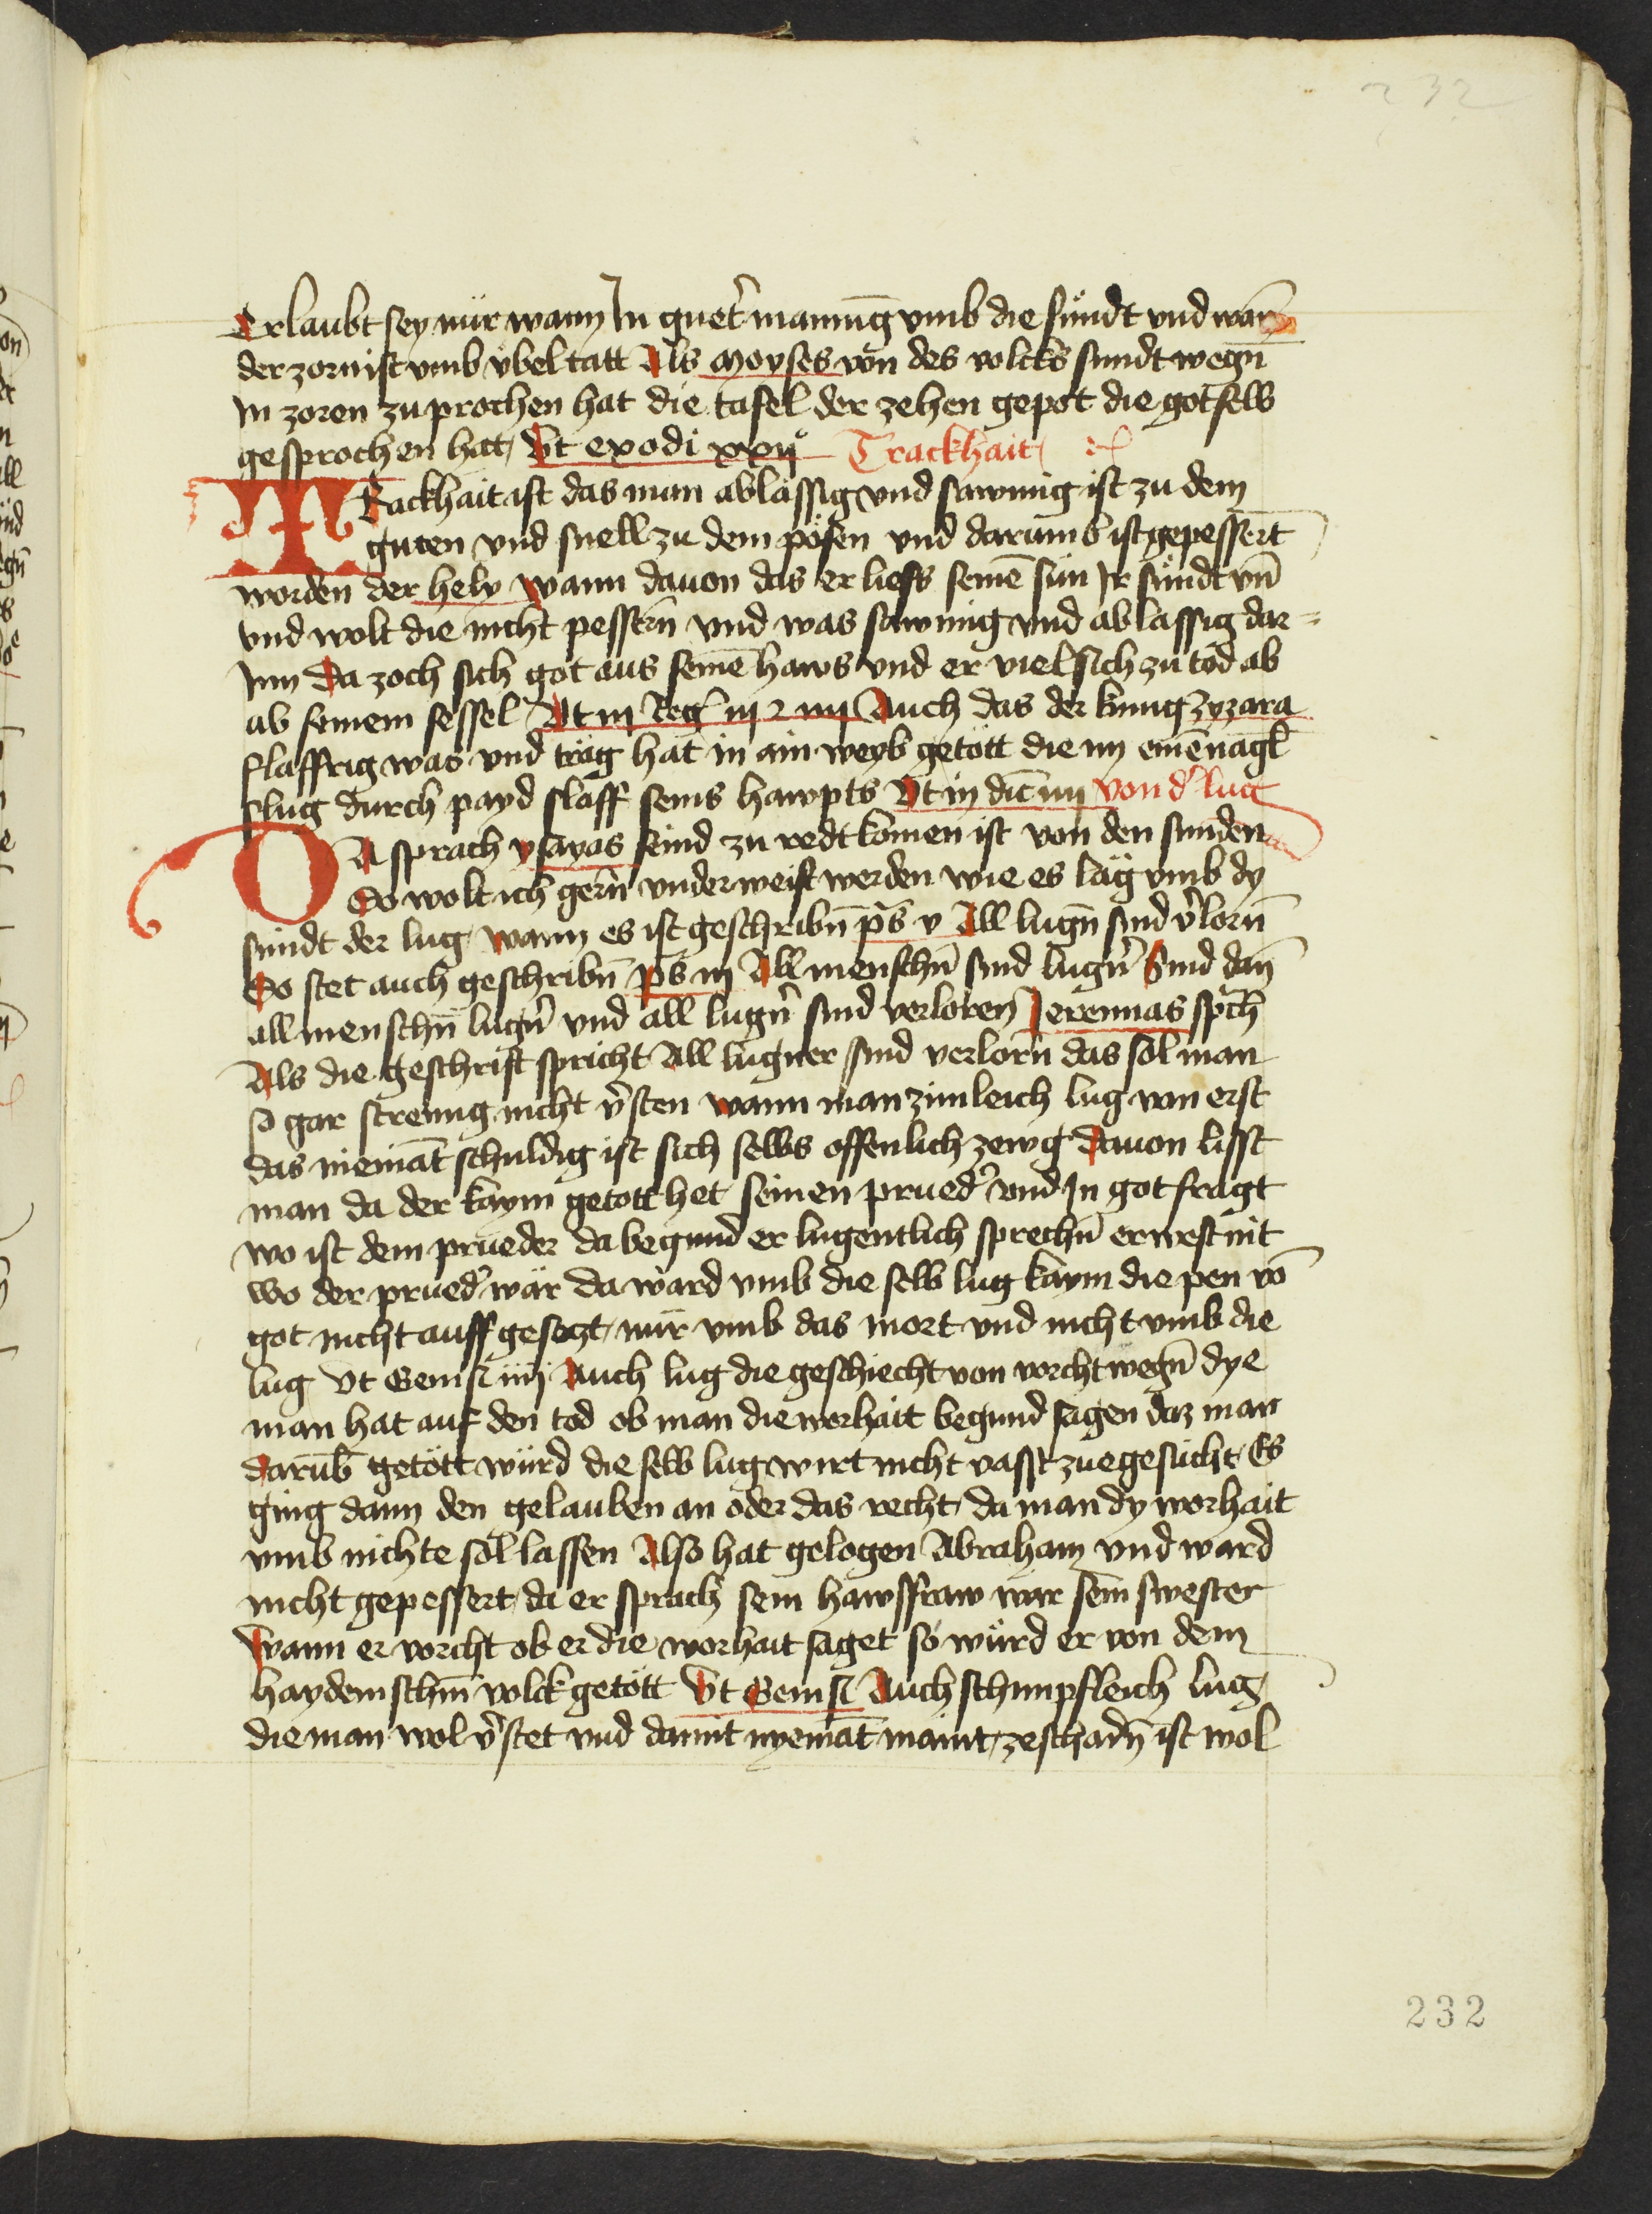 232
Erlaubt sey nür wann In guet̉ mainūg vmb die sündt vnd wan̄
der zorn ist vmb v̈bel tatt Als Moyses von des volcks sundt wegn̄
In zoren zuprochen hat die tafel der zehen gepot die got selb
gesprochen hat Vt exodi xxxij° Trackhait
TRackhait ist das man ablässig vnd sawmig ist zu dem
guten vnd snell zu dem pösen vnd darumb ist gepessert
worden der hely wann dauon das er liess seinē sün Ir sündt vn̄
vnd wolt die nicht pessern̄ vnd was sawmig vnd ablassig dar=
Inn Da zoch sich got aus seinē haws vnd er viel sich zu tod ab
ab seinem sessel Vt in Reg̃ iij 2 iiij Auch das der kunig zyzara
slaffrig was vnd träg hat in ain weyb getött die im einē nagl̄
slug durch payd slaff seins hawpts Vt in dic̄ iiij Von d̉ lug
DA sprach ysayas seind zu redt komen ist von den sunden
So wolt ich gern̄ vnderweist werden wie es läg vmb dy
sündt der lug wann es ist geschribn̄ p̄s v All lugn̄ sind v̉lorn̄
So stet auch geschribn̄ p̄s iij All menschn̄ sind lugn̉ Sind dan̄
all menschn̄ lugn̉ vnd all lugn̉ sind verloren Jeremias sp̄ch
Als die geschrift spricht All lugner sind verlorn̄ das sol man
so gar strenng nicht v̉sten wann man zimleich lug wan erst
das niemāt schuldig ist sich selbs offenlich zewg Dauon lisst
man da der kaym getott het seinen prued̉ vnd In got fragt
wo ist dein prueder da begund er lugentlich sprechn̄ er west nit
wo der prued̉ wär da ward vmb die selb lug kaym die pen vō
got nicht auff gesetzt nür vmb das mort vnd nicht vmb die
lug Vt Genis̄ iiij Auch lug die geschiecht von vorcht wegn̄ dye
man hat auf den tod ob man die worhait begund sagen daz man
darūb getött würd die selb lug wirt nicht vasst zuegesücht Es
ging dann den gelauben an oder das recht da man dy worhait
vmb nichte sol lassen Also hat gelogen Abraham vnd ward
nicht gepessert da er sprach sein hawsfraw wär sein swester
Wann er vorcht ob er die worhait saget so würd er von dem
haydenischn̄ volck getött Vt Genis̄ Auch schimpfleich lug
die man wol v̉stet vnd damit nyemāt maint zeschadn̄ ist wol
232